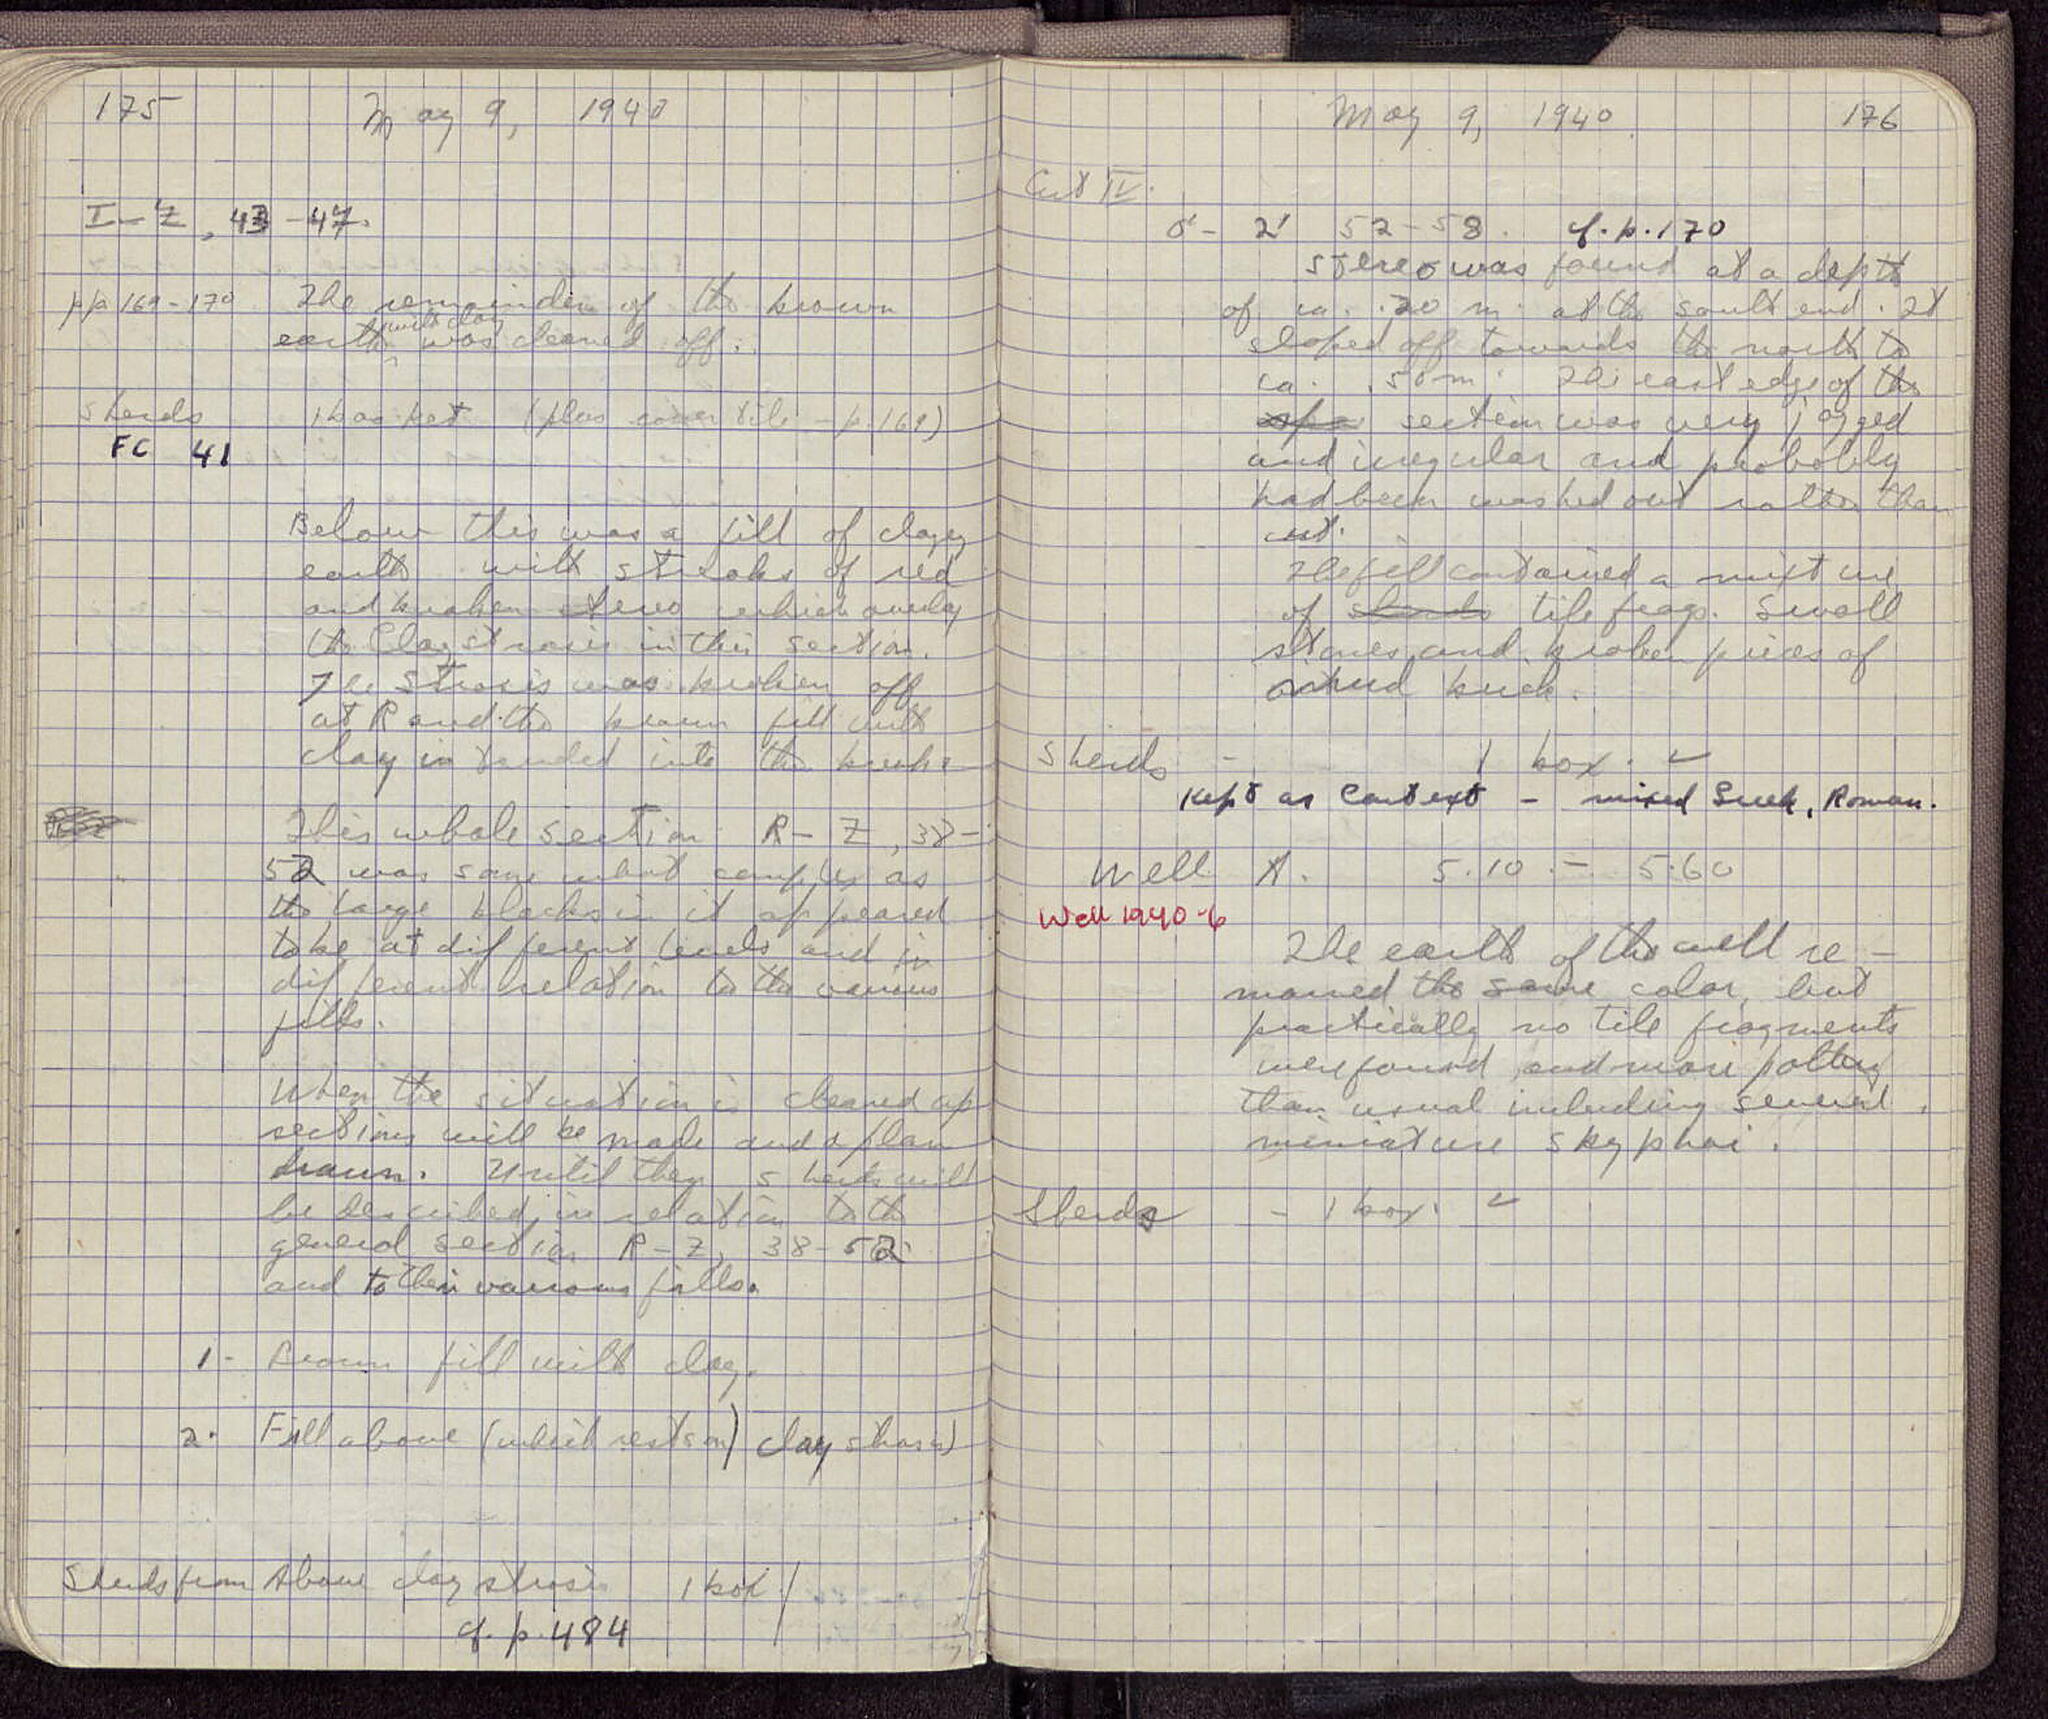 175 May 9, 1940
I-Z, 43-47.
pp 169-170 The remainder of the brown
with clay
earth was cleaned off.
Sherds 1 basket (plus cover tile - p. 169)
FC 41
Below this was a fill of clayey
earth with streaks of red
and broken stereo which overlay
the Clay strosis in this section.
The Strosis was broken off
at R and the brown fill with
clay intruded into the break.
This whole section R-Z, 38-
52 was somewhat complex as
the large blocks in it appeared
to be at different levels and in
different relation to the various
fills.
When the situation is cleared up
sections will be made and a plan
drawn. Until then sherds will
be described in relation to the
general section R-Z, 38-52
and to their various fills.
1- Brown fill with clay.
2. Fill above (which rests on) clay strosis
Sherds from Above clay strosis 1 box /
cf. p. 484
May 9, 1940 176
Cut IV.
2' 52-58. cf. p. 170
Stereo was found at a depth
of ca. .20 m. at the south end. It
sloped off towards the north to
ca. .50 m. The east edge of the
section was very jagged
and irregular and probably
had been washed out rather than
cut.
The fill contained a mixture
of sherds tile frags. Small
stones and broken pieces of
mud brick.
Sherds - 1 box. ✓
Kept as Context - mixed Greek, Roman.
Well A. 5.10 - 5.60
Well 1940-6
The earth of the well re-
mained the same color, but
practically no tile fragments
were found and more pottery
than usual including several
miniature skyphoi.
Sherds - 1 box. ✓